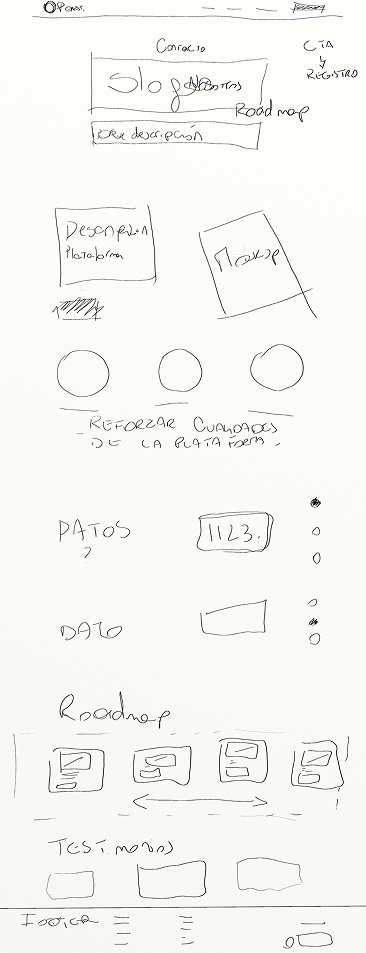 Contacto
CTA
REGISTRO
Slogan
Nosotros
Roadmap
Breve descripción
Descripción
Plataforma
Mockup
REFORZAR CUALIDADES
DE LA PLATAFORMA.
DATOS
?
1123.
DATO
Roadmap
TESTimonios
Footer